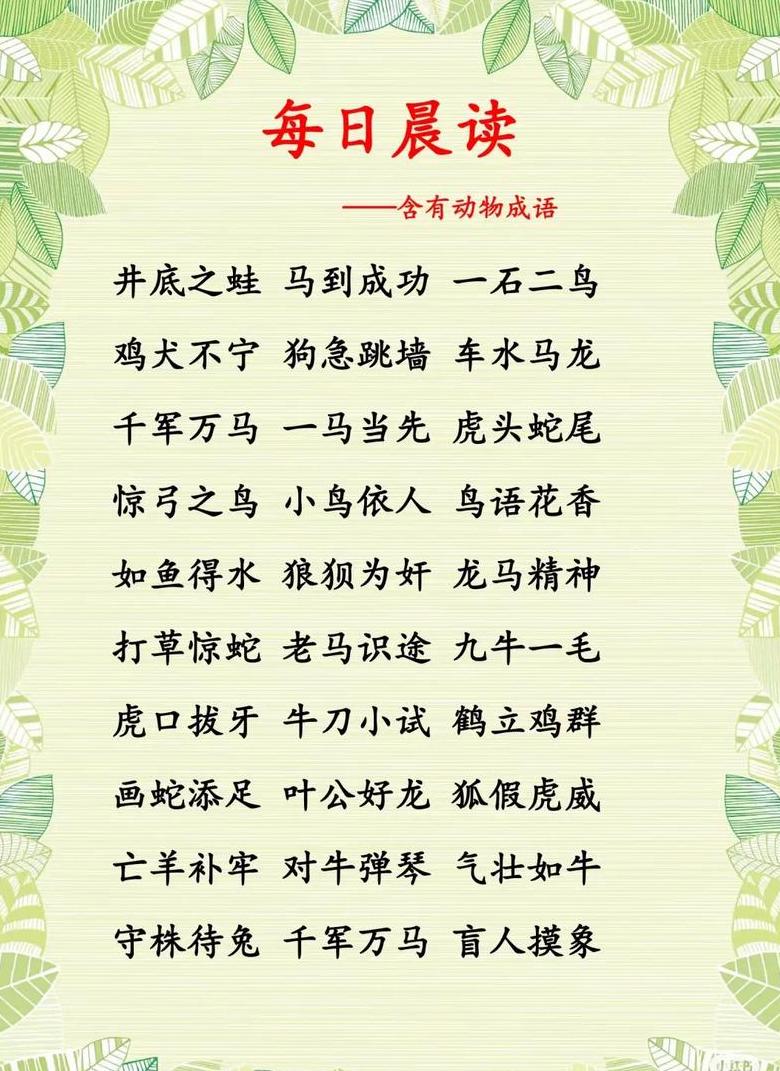 每日晨读
——含有动物成语
井底之蛙 马到成功 一石二鸟
鸡犬不宁 狗急跳墙 车水马龙
千军万马 一马当先 虎头蛇尾
惊弓之鸟 小鸟依人 鸟语花香
如鱼得水 狼狈为奸 龙马精神
打草惊蛇 老马识途 九牛一毛
虎口拔牙 牛刀小试 鹤立鸡群
画蛇添足 叶公好龙 狐假虎威
亡羊补牢 对牛弹琴 气壮如牛
守株待兔 千军万马 盲人摸象